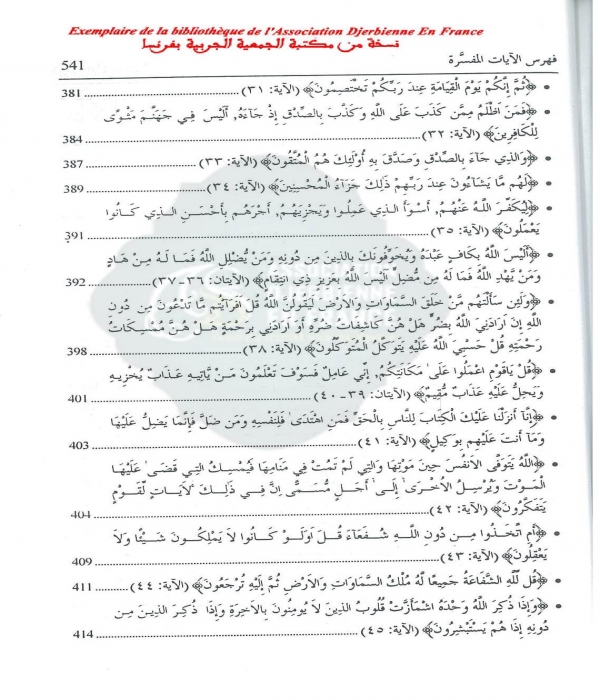 Exemplaire de la bibliothèque de l'Association Djerbienne En France
نسخة من مكتبة الجمعية الجربية بفرنسا
فهرس الآيات المفسَّرة 541
• ﴿ثُمَّ إِنَّكُمْ يَوْمَ الْقِيَامَةِ عِندَ رَبِّكُمْ تَخْتَصِمُونَ﴾ (الآية: ٣١) 381
• ﴿فَمَنَ اَظْلَمُ مِمَّن كَذَبَ عَلَى اللَّهِ وَكَذَّبَ بِالصِّدْقِ إِذْ جَآءَهُ, أَلَيْسَ فِي جَهَنَّمَ مَثْوًى
لِّلْكَافِرِينَ﴾ (الآية: ٣٢) 384
• ﴿وَالذِي جَآءَ بِالصِّدْقِ وَصَدَّقَ بِهِ أُوْلَئِكَ هُمُ الْمُتَّقُونَ﴾ (الآية: ٣٣) 387
• ﴿لَهُم مَّا يَشَآءُونَ عِندَ رَبِّهِمْ ذَلِكَ جَزَآءُ الْمُحْسِنِينَ﴾ (الآية: ٣٤) 389
• ﴿لِيُكَفِّرَ اللَّهُ عَنْهُمُ, أَسْوَأَ الذِي عَمِلُوا وَيَجْزِيَهُمُ, أَجْرَهُم بِأَحْسَنِ الذِي كَانُوا
يَعْمَلُونَ﴾ (الآية: ٣٥) 391
• ﴿أَلَيْسَ اللَّهُ بِكَافٍ عَبْدَهُ وَيُخَوِّفُونَكَ بِالذِينَ مِن دُونِهِ وَمَنْ يُّضْلِلِ اللَّهُ فَمَا لَهُ مِنْ هَادٍ
وَمَنْ يَّهْدِ اللَّهُ فَمَا لَهُ مِن مُّضِلٍّ اَلَيْسَ اللَّهُ بِعَزِيزٍ ذِي انتِقَامٍ﴾ (الآيتان: ٣٦-٣٧) 392
• ﴿وَلَئِن سَأَلْتَهُم مَّنْ خَلَقَ السَّمَاوَاتِ وَالاَرْضَ لَيَقُولُنَّ اللَّهُ قُلَ اَفَرَآيْتُم مَّا تَدْعُونَ مِن دُونِ
اللَّهِ إِنَ اَرَادَنِيَ اللَّهُ بِضُرٍّ هَلْ هُنَّ كَاشِفَاتُ ضُرِّهِ أَوَ اَرَادَنِي بِرَحْمَةٍ هَلْ هُنَّ مُمْسِكَاتُ
رَحْمَتِهِ قُلْ حَسْبِيَ اللَّهُ عَلَيْهِ يَتَوَكَّلُ الْمُتَوَكِّلُونَ﴾ (الآية: ٣٨) 398
• ﴿قُلْ يَاقَوْمِ اعْمَلُوا عَلَى مَكَانَتِكُمُ, إِنِّي عَامِلٌ فَسَوْفَ تَعْلَمُونَ مَنْ يَّاتِيهِ عَذَابٌ يُخْزِيهِ
وَيَحِلُّ عَلَيْهِ عَذَابٌ مُّقِيمٌ﴾ (الآيتان: ٣٩-٤٠) 401
• ﴿إِنَّآ أَنزَلْنَا عَلَيْكَ الْكِتَابَ لِلنَّاسِ بِالْحَقِّ فَمَنِ اهْتَدَى فَلِنَفْسِهِ وَمَن ضَلَّ فَإِنَّمَا يَضِلُّ عَلَيْهَا
وَمَآ أَنتَ عَلَيْهِم بِوَكِيلٍ﴾ (الآية: ٤١) 403
• ﴿اللَّهُ يَتَوَفَّى الاَنفُسَ حِينَ مَوْتِهَا وَالتِي لَمْ تَمُتْ فِي مَنَامِهَا فَيُمْسِكُ التِي قَضَى عَلَيْهَا
الْمَوْتَ وَيُرْسِلُ الاُخْرَى إِلَى أَجَلٍ مُّسَمًّى اِنَّ فِي ذَلِكَ لَآيَاتٍ لِّقَوْمٍ
يَتَفَكَّرُونَ﴾ (الآية: ٤٢) 404
• ﴿أَمِ اتَّخَذُوا مِن دُونِ اللَّهِ شُفَعَآءَ قُلَ اَوَلَوْ كَانُوا لَا يَمْلِكُونَ شَيْئًا وَلَا
يَعْقِلُونَ﴾ (الآية: ٤٣) 409
• ﴿قُل لِّلَّهِ الشَّفَاعَةُ جَمِيعًا لَّهُ مُلْكُ السَّمَاوَاتِ وَالاَرْضِ ثُمَّ إِلَيْهِ تُرْجَعُونَ﴾ (الآية: ٤٤) 411
• ﴿وَإِذَا ذُكِرَ اللَّهُ وَحْدَهُ اشْمَأَزَّتْ قُلُوبُ الذِينَ لَا يُومِنُونَ بِالاَخِرَةِ وَإِذَا ذُكِرَ الذِينَ مِن
دُونِهِ إِذَا هُمْ يَسْتَبْشِرُونَ﴾ (الآية: ٤٥) 414